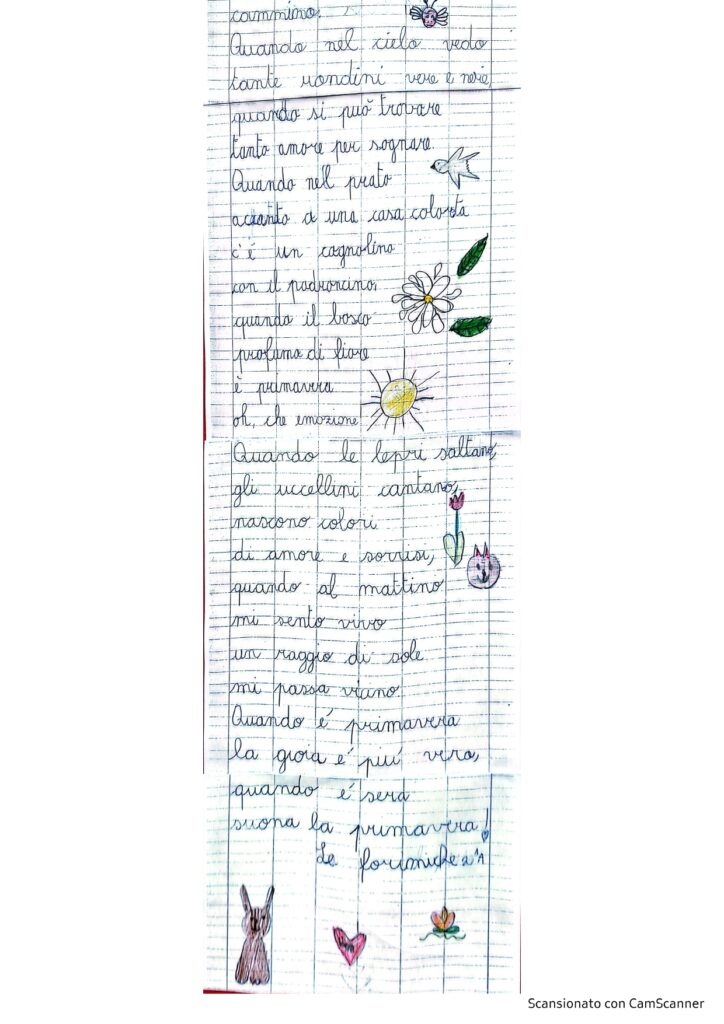 cammino.
Quando nel cielo vedo
tante rondini vere e nere,
quando si può trovare
tanto amore per sognare.
Quando nel prato
accanto a una casa colorata
c'é un cagnolino
con il padroncino,
quando il bosco
profuma di fiore
è primavera
oh, che emozione!
Quando le lepri saltano,
gli uccellini cantano,
nascono colori
di amore e sorrisi,
quando al mattino
mi sento vivo
un raggio di sole
mi passa vicino.
Quando é primavera
la gioia é piú vera,
quando é sera
suona la primavera!
Le formiche 2ªA
Scansionato con CamScanner